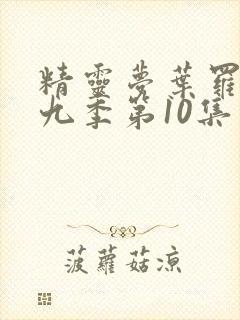 精靈夢葉羅
九季第10集
菠蘿菇涼